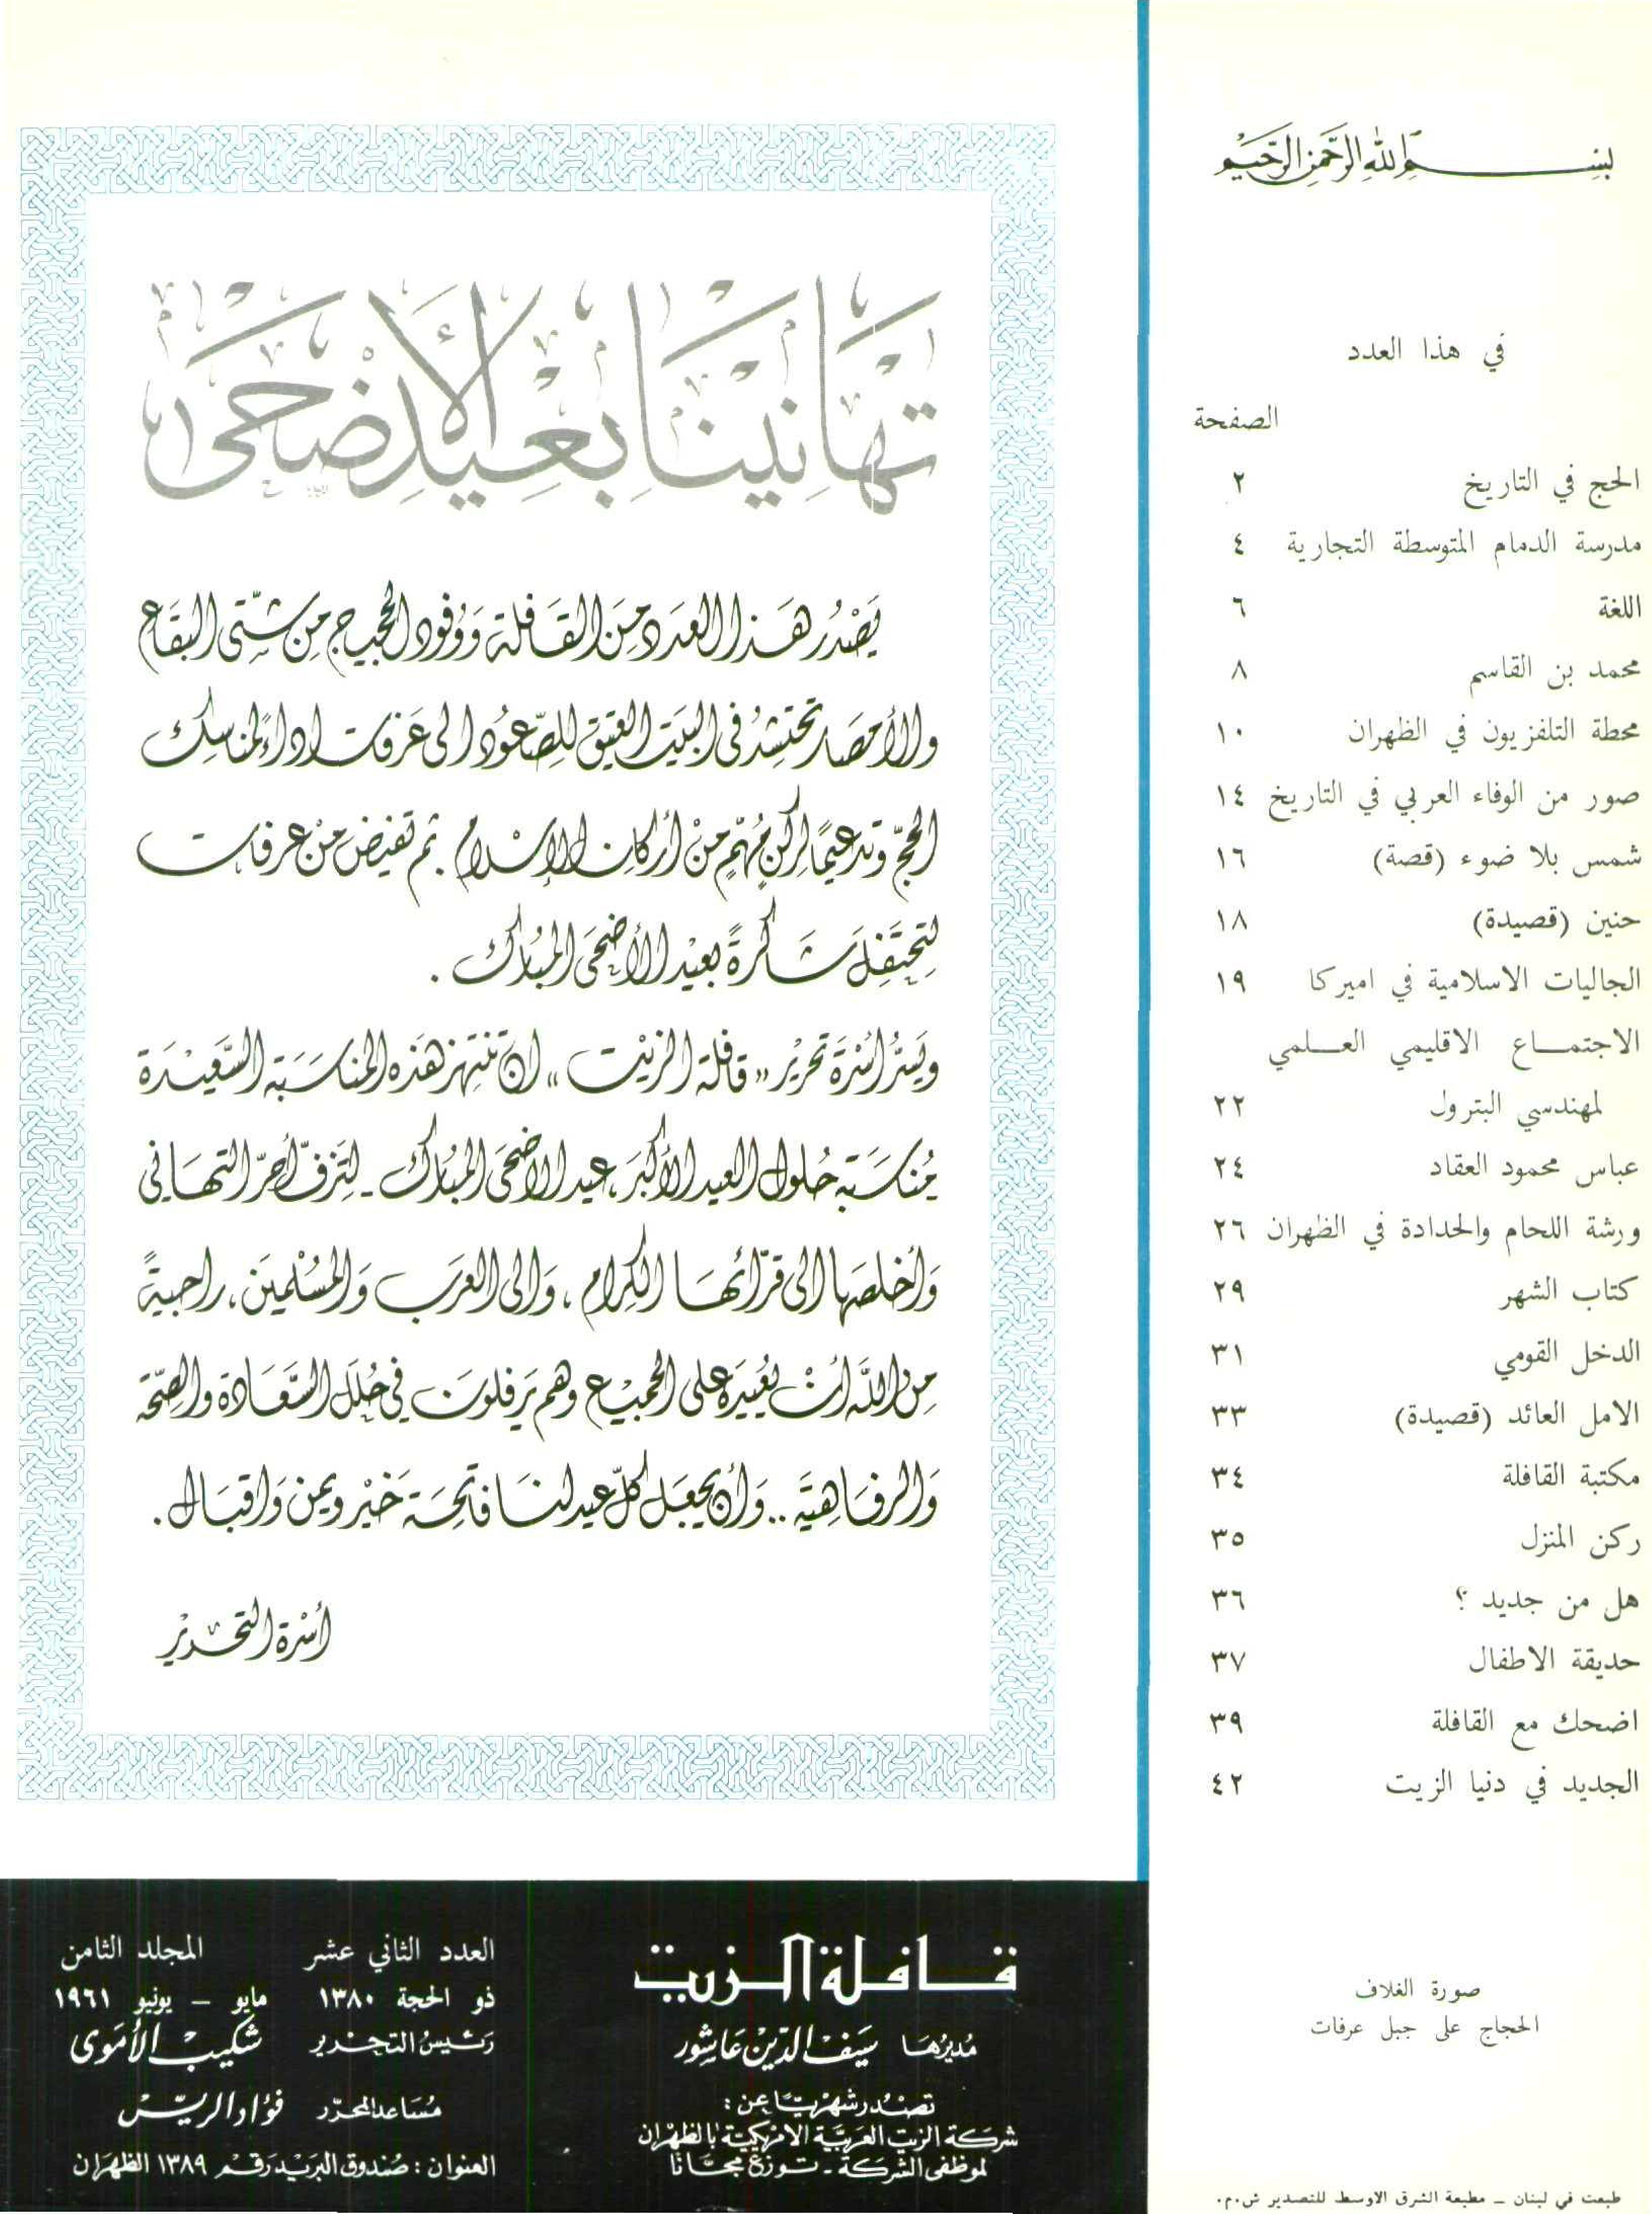 بسم الله الرحمن الرحيم
في هذا العدد
الصفحة
الحج في التاريخ ٢
مدرسة الدمام المتوسطة التجارية ٤
اللغة ٦
محمد بن القاسم ٨
محطة التلفزيون في الظهران ١٠
صور من الوفاء العربي في التاريخ ١٤
شمس بلا ضوء (قصة) ١٦
حنين (قصيدة) ١٨
الجاليات الاسلامية في اميركا ١٩
الاجتمـــاع الاقليمي العـــلمي
لمهندسي البترول ٢٢
عباس محمود العقاد ٢٤
ورشة اللحام والحدادة في الظهران ٢٦
كتاب الشهر ٢٩
الدخل القومي ٣١
الامل العائد (قصيدة) ٣٣
مكتبة القافلة ٣٤
ركن المنزل ٣٥
هل من جديد ؟ ٣٦
حديقة الاطفال ٣٧
اضحك مع القافلة ٣٩
الجديد في دنيا الزيت ٤٢
صورة الغلاف
الحجاج على جبل عرفات
طبعت في لبنان – مطبعة الشرق الاوسط للتصدير ش.م.م.
تهانينا بعيد الأضحى
يَصْدُر هَذا العَدد مِنَ القَافلة وَوُفود الحجيج مِن شتّى البقَاع
والأمصَار تحتَشِدُ في البَيت العَتيق للصّعُود الى عَرفات اداءً لمناسك
الحجّ وتدعيمًا لركنٍ مُهمّ من أركان الإسْلام . ثم تفيض منْ عرفات
لتحتَفِلَ شاكرةً بعيْد الأضحَى المبُارك .
ويَسُرّ أسْرَة تحرْير "قافلة الزيْت" ان تنتهز هَذه المناسَبَة السَّعيْدَة
مُناسَبَة حُلول العيد الأكبرَ، عيد الاضحَى المبُارك - لتَزفّ أحرّ التهَاني
وَأخلصَها الى قرّائهَا الكرام ، وَالى العَرَب وَالمسْلمين ، راجيةً
من اللّه أنْ يعُيدَه على الجميْع وهم يَرفلونَ في حُلَل السَّعَادة والصِّحّة
وَالرفَاهيَة .. وَأن يجعَل كلّ عيد لنَا فاتحَة خَيْر ويمن وَاقبَال .
أسْرة التحْرير
قافلة الزيت
مُديرُهَا سَيف الدّين عَاشور
تصْدُر شهْريًّا عن :
شركَة الزيت العَربيَّة الامْريكيَّة بالظهْران
لموظفي الشركَة - تـوزع مجَّانًا
العدد الثاني عشر المجلد الثامن
ذو الحجة ١٣٨٠ مايو – يونيو ١٩٦١
رَئيسُ التحْرير شكيبْ الأمَوي
مُسَاعد المحرّر فؤاد الريّس
العنوان : صُندوق البَريْد رَقم ١٣٨٩ الظهَران